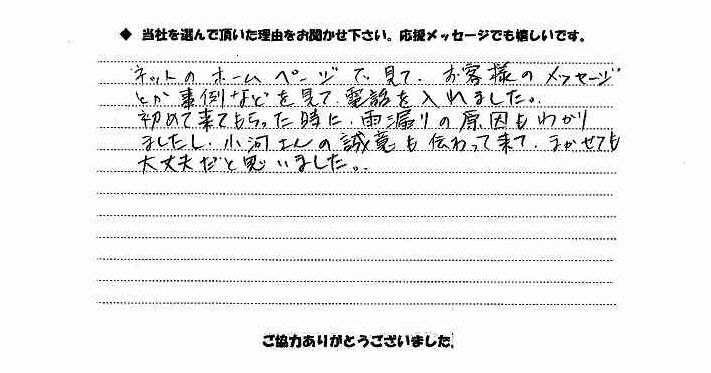 ◆ 当社を選んで頂いた理由をお聞かせ下さい。応援メッセージでも嬉しいです。
ネットのホームページで見て、お客様のメッセージ
とか事例などを見て電話を入れました。
初めて来てもらった時に、雨漏りの原因もわかり
ましたし、小河さんの誠意も伝わって来て、まかせても
大丈夫だと思いました。
ご協力ありがとうございました。